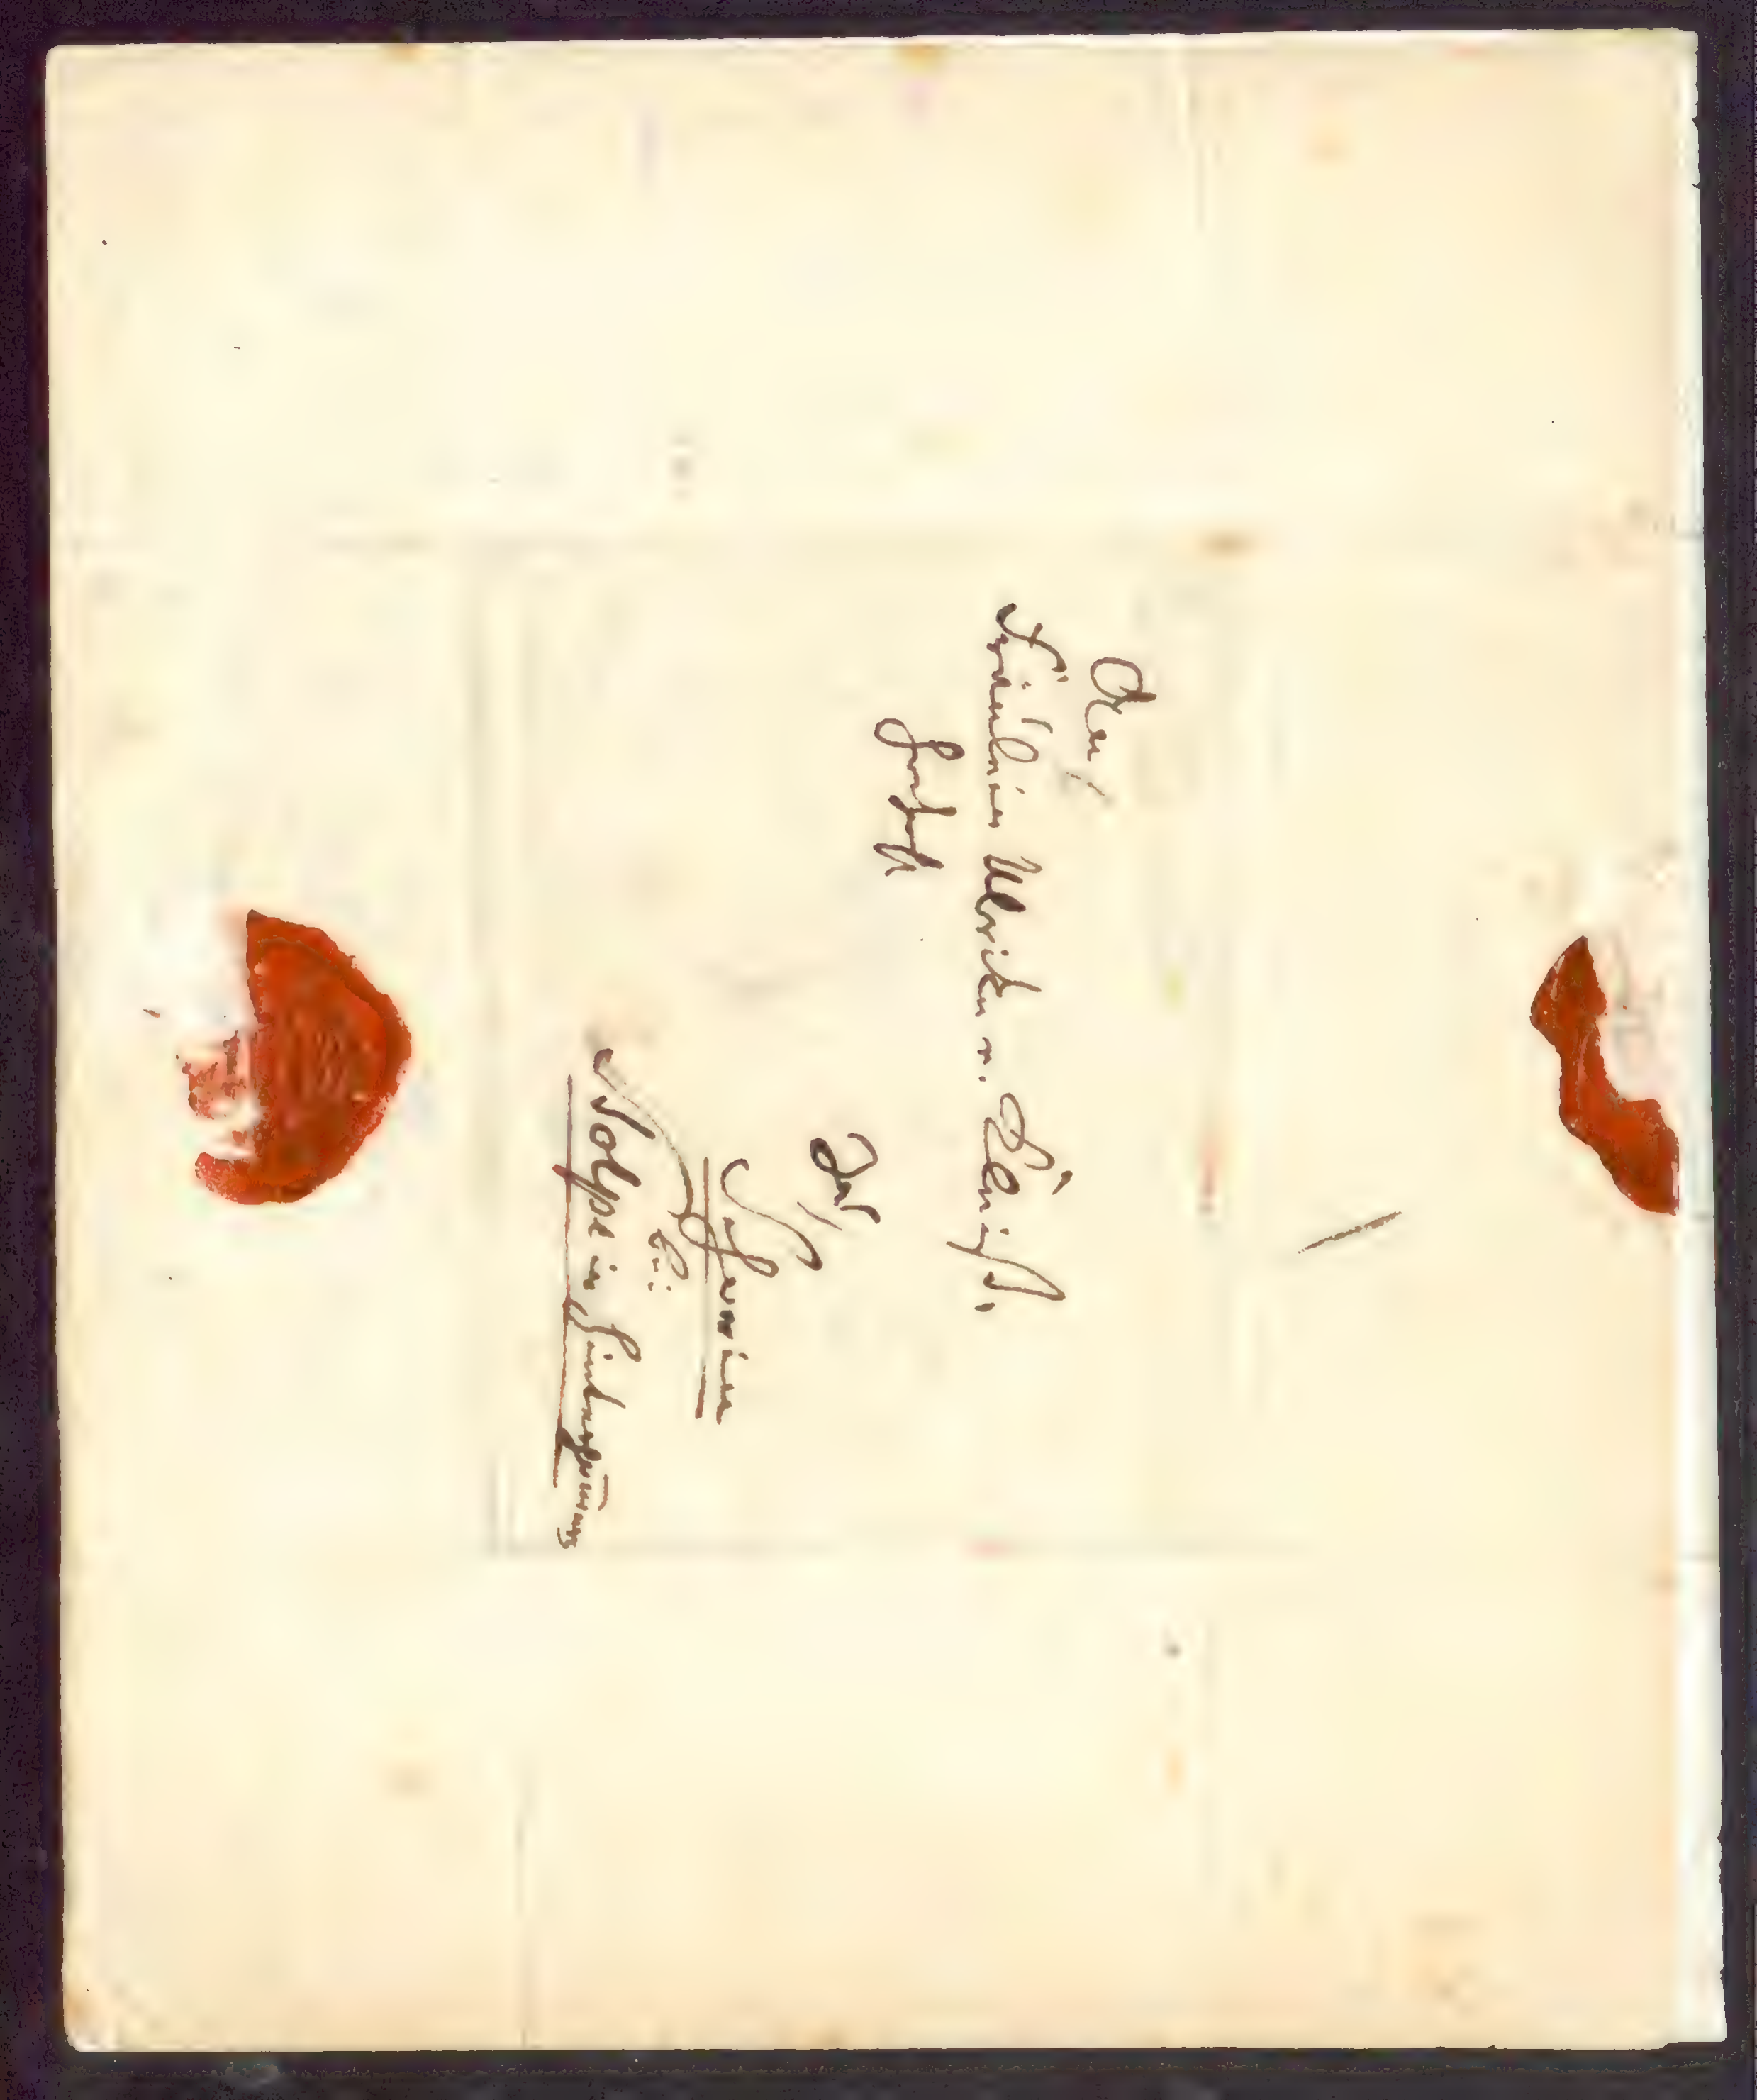 An
Fräulein Ulriken v. Kleist,
zu
Schorin
bei
Stolpe in Hinterpommern